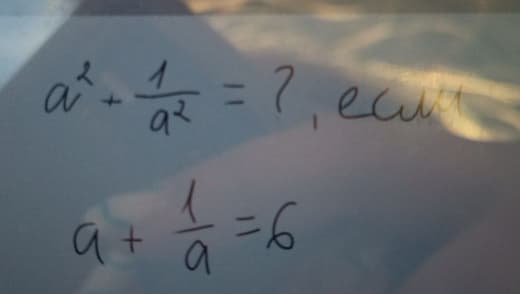 a² + 1/a² = ?, если
a + 1/a = 6